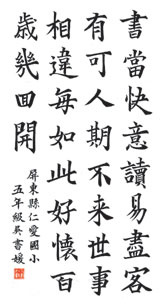 書當快意讀易盡客
有可人期不來世事
相違每如此好懷百
歲幾回開
屏東縣仁愛國小
五年級吳書媛